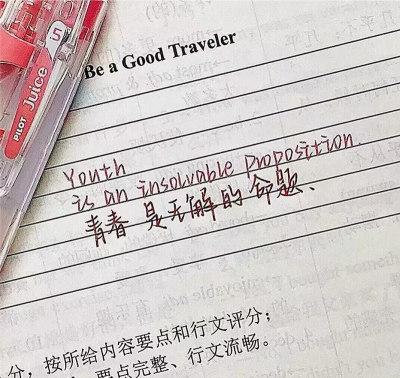 5
Juice
PILOT
Be a Good Traveler
Youth
is an insolvable proposition.
青春 是无解的命题、
分，按所给内容要点和行文评分；
要点完整、行文流畅。